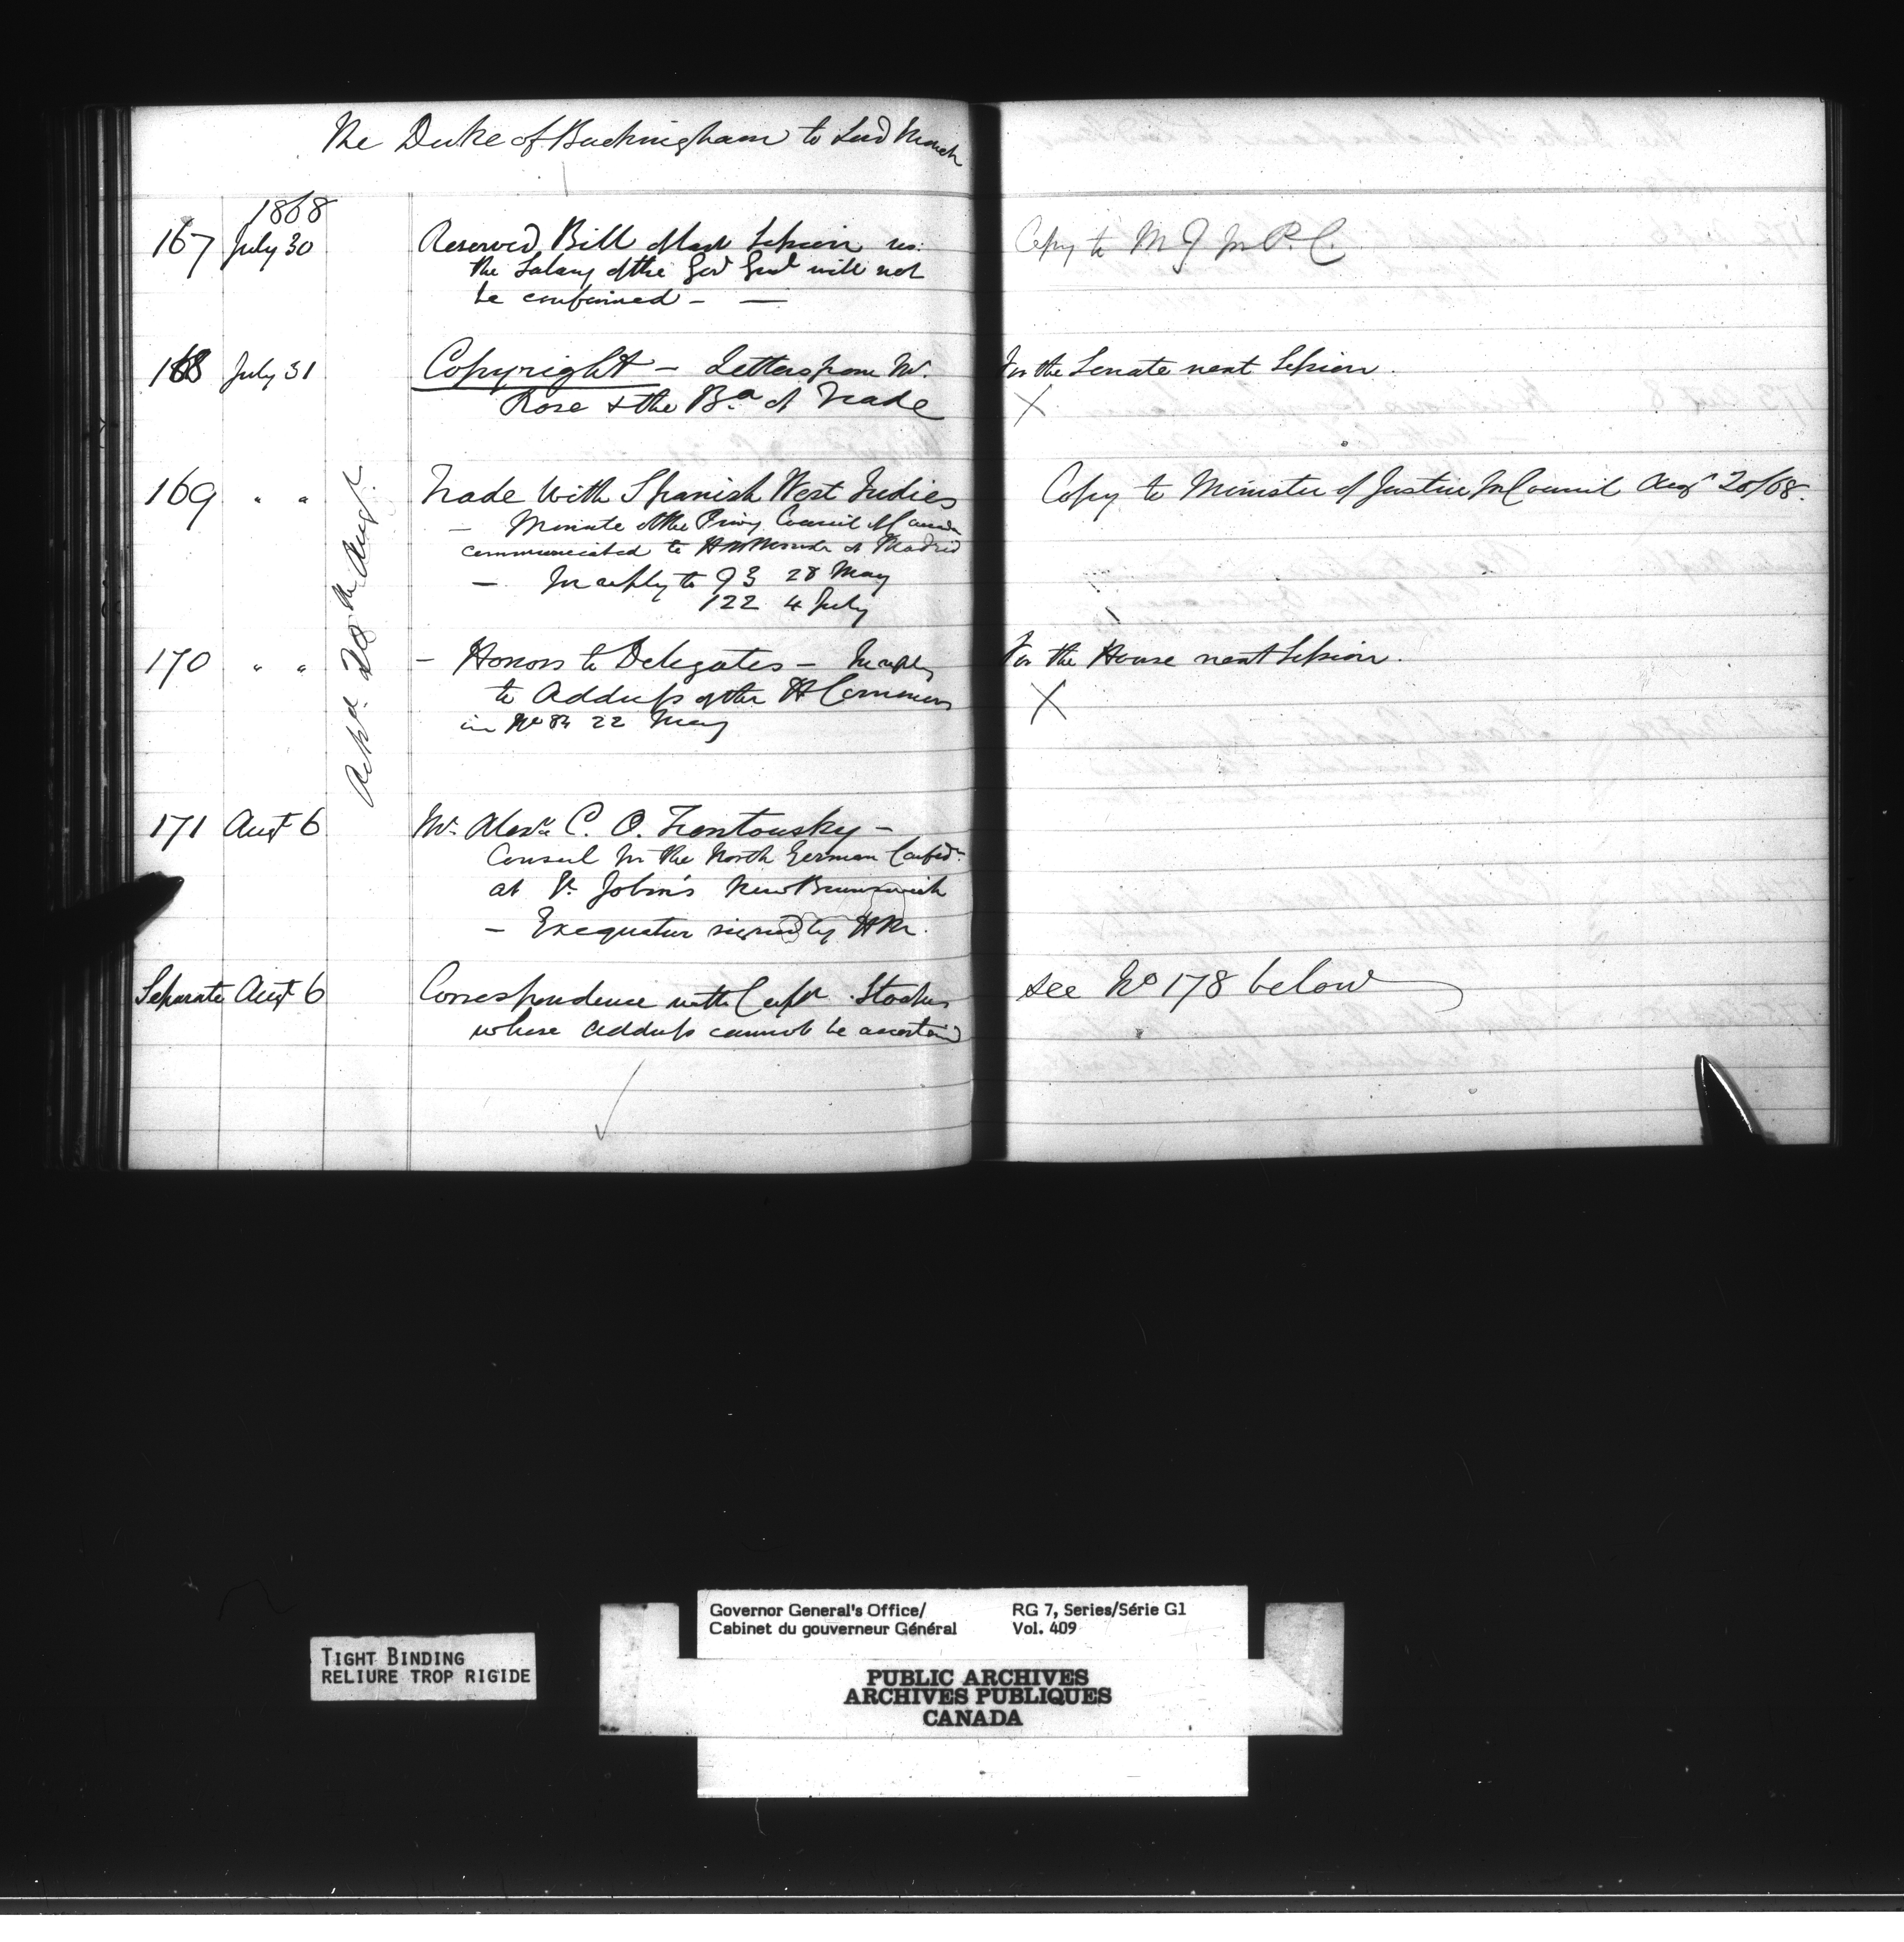 The Duke of Buckingham to Lord Monck
1868
167 July 30 Reserved Bill of last Session re:
the Salary of the Gov Genl will not
be confirmed - —
Copy to M J for P. C.
168 July 31 Copyright - Letters from Mr.
Rose & the Bd of Trade
For the Senate next Session.
X
169 " " Trade with Spanish West Indies
— Minute of the Privy Council of Canada
communicated to HM Minister at Madrid
— In reply to 93 28 May
122 4 July
Copy to Minister of Justice for Council Augt 20/68.
170 " " - Honors to Delegates - In reply
to Address of the H Commons
in No 84 22 May
For the House next Session.
X
Ackd. 20th Augt.
171 Augt 6 Mr. Alexr C. O. Trentowsky -
Consul for the North German Confedn.
at St. John's New Brunswick
- Exequatur signed by HM.
Separate Augt 6 Correspondence with Captn
whose address cannot be ascertaind
see No 178 below
Governor General's Office/
Cabinet du gouverneur Général
RG 7, Series/Série G1
Vol. 409
TIGHT BINDING
RELIURE TROP RIGIDE
PUBLIC ARCHIVES
ARCHIVES PUBLIQUES
CANADA